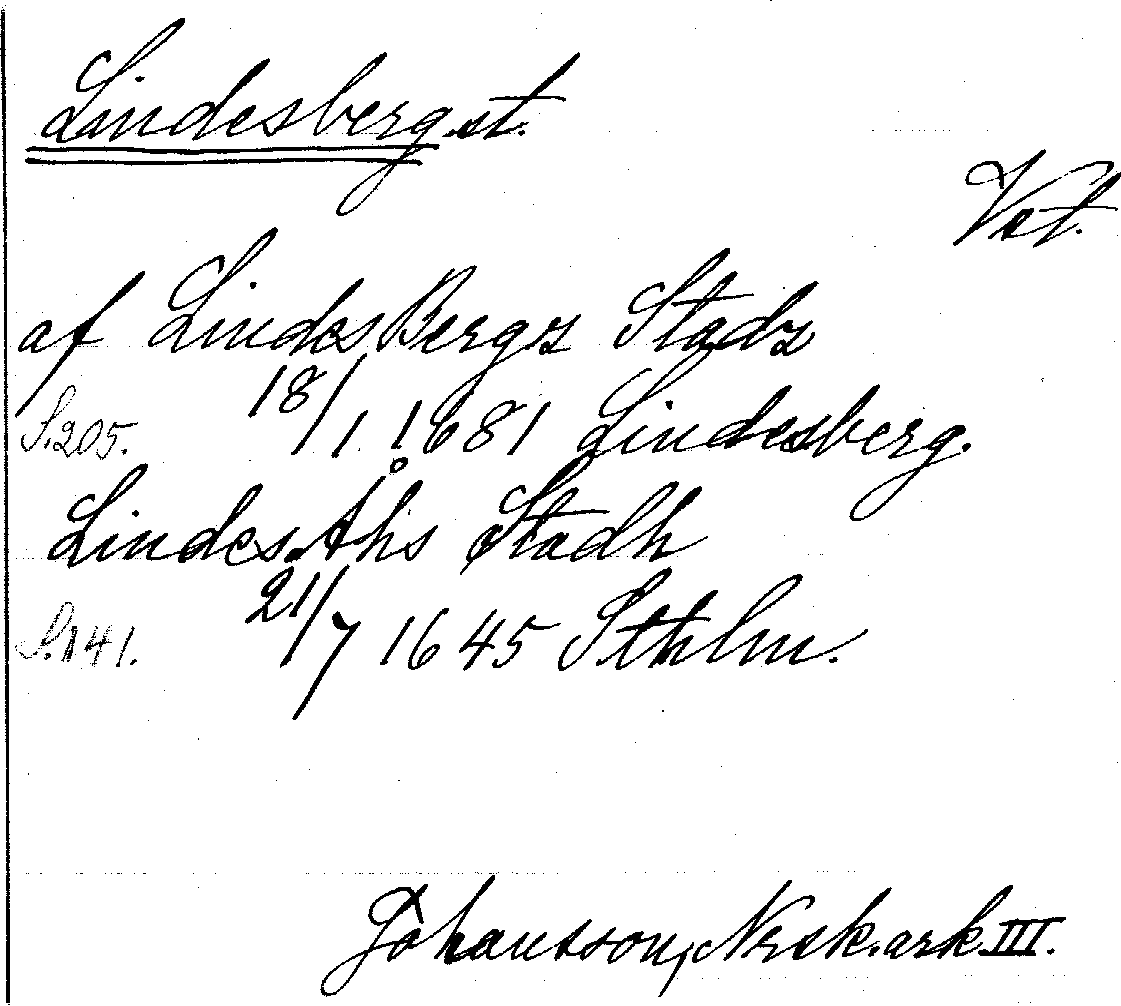 Lindesberg st.
Vst.
af LindesBergz Stadz
S. 205. 18/1 1681 Lindesberg.
Lindes.Åhs Stadh
S. 141. 21/7 1645 Sthlm.
Johansson, Nrsk. ark. III.